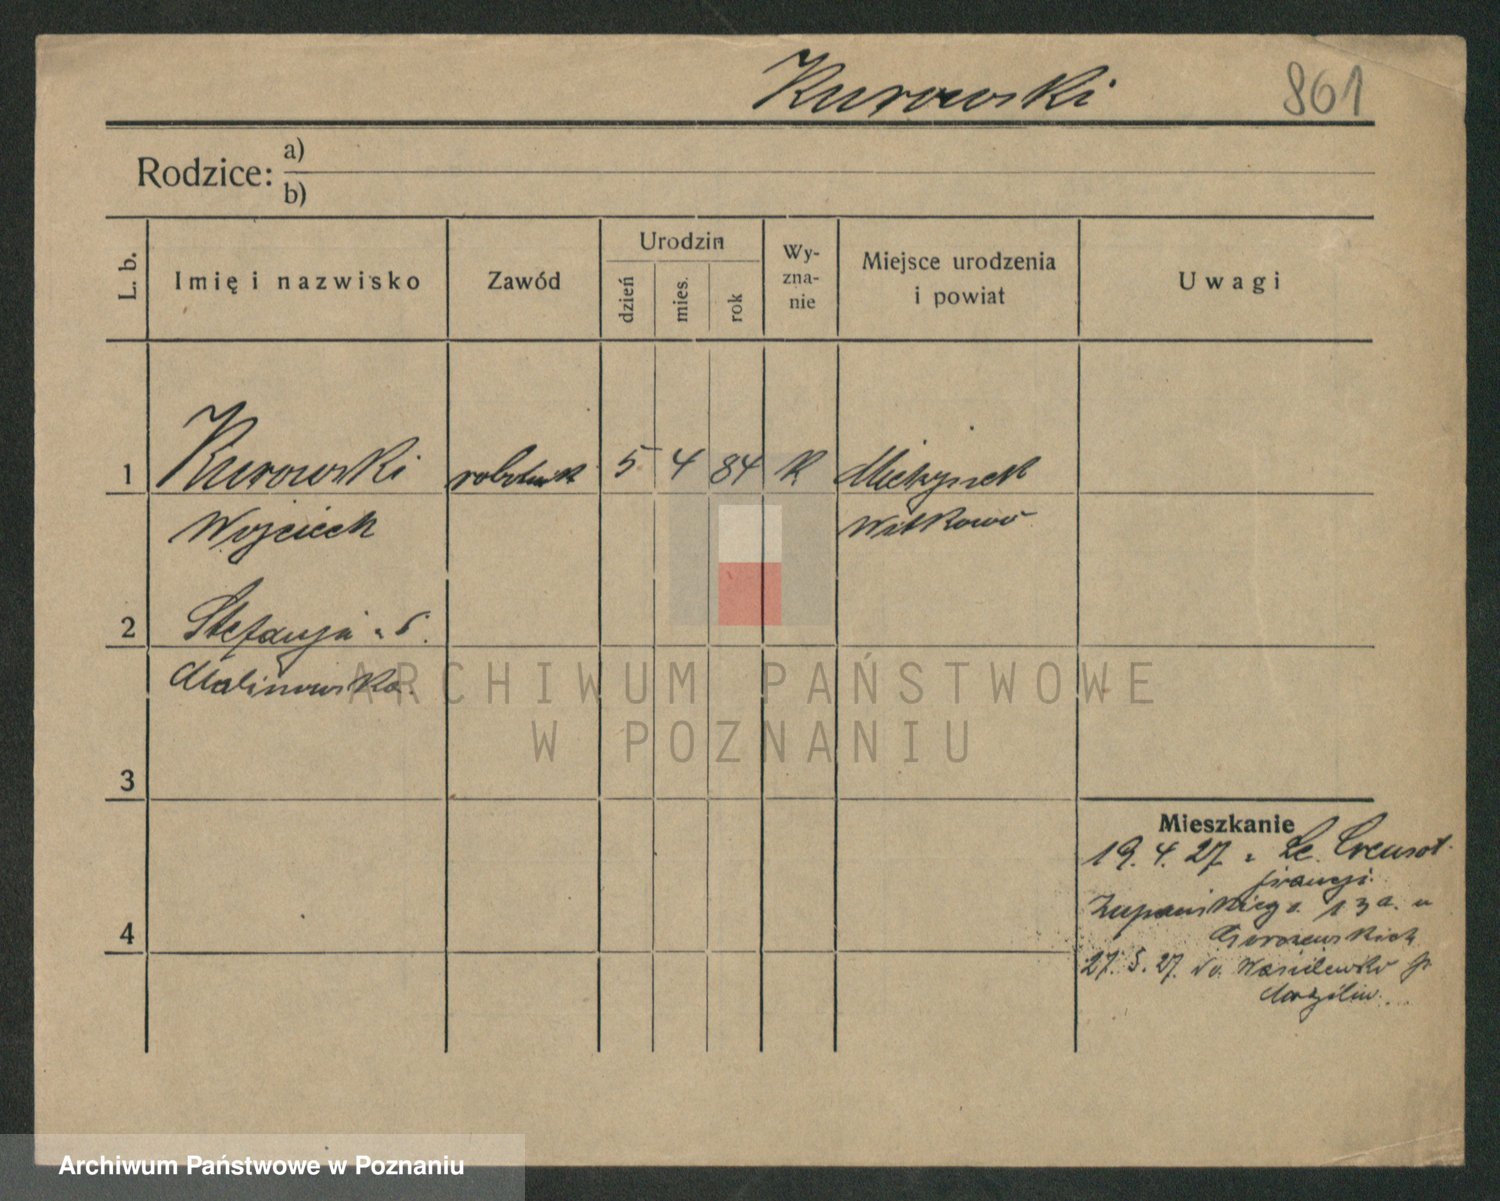 Kurowski 861
Rodzice: a)
b)
L. b. Imię i nazwisko Zawód Urodzin dzień mies. rok Wy-zna-nie Miejsce urodzenia i powiat Uwagi
1 Kurowski robotnik 5 4 84 K
Wojciech Witkowo
2 Stefanja
Malinowska
ARCHIWUM PAŃSTWOWE
W POZNANIU
3
Mieszkanie
19. 4. 27 Le Creusot
Francji
Żupańskiego 13a. u
4
27. 5. 27. do
Archiwum Państwowe w Poznaniu